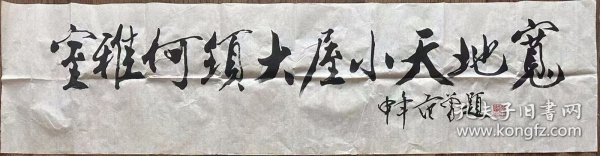 室雅何須大屋小天地寬
申年范曾題
孔夫子旧书网
www.kongfz.com